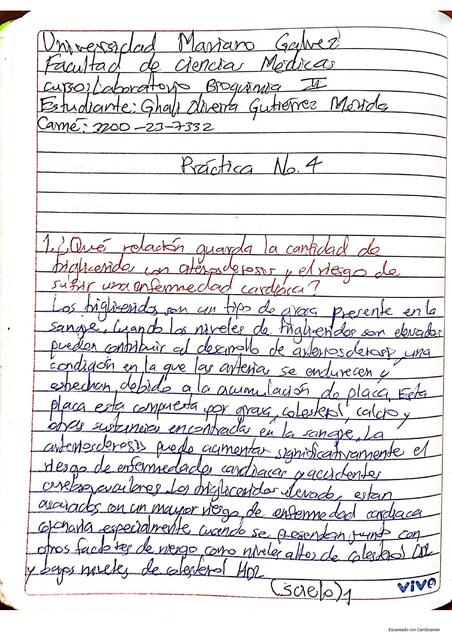 Universidad Mariano Galvez
Facultad de Ciencias Médicas
curso: Laboratorio Bioquimica II
Estudiante: Ghali Oliveira Gutierrez Merida
Carné: 3200-23-7332
Práctica No. 4
1. ¿Qué relación guarda la cantidad de
trigliceridos con aterosclerosis y el riesgo de
sufrir una enfermedad cardiaca?
Los trigliceridos son un tipo de grasa presente en la
sangre. Cuando los niveles de trigliceridos son elevados
pueden contribuir al desarrollo de arteriosclerosis, una
condición en la que las arterias se endurecen y
estrechan debido a la acumulación de placa. Esta
placa esta compuesta por grasa, colesterol, calcio y
otras sustancias encontradas en la sangre. La
arteriosclerosis puede aumentar significativamente el
riesgo de enfermedades cardiacas y accidentes
Los trigliceridos elevados estan
asociados con un mayor riesgo de enfermedad cardiaca
coronaria especialmente cuando se presentan junto con
otros factores de riesgo como niveles altos de colesterol LDL
y bajos niveles de colesterol HDL
(scielo) 1
vivo
Escaneado con CamScanner